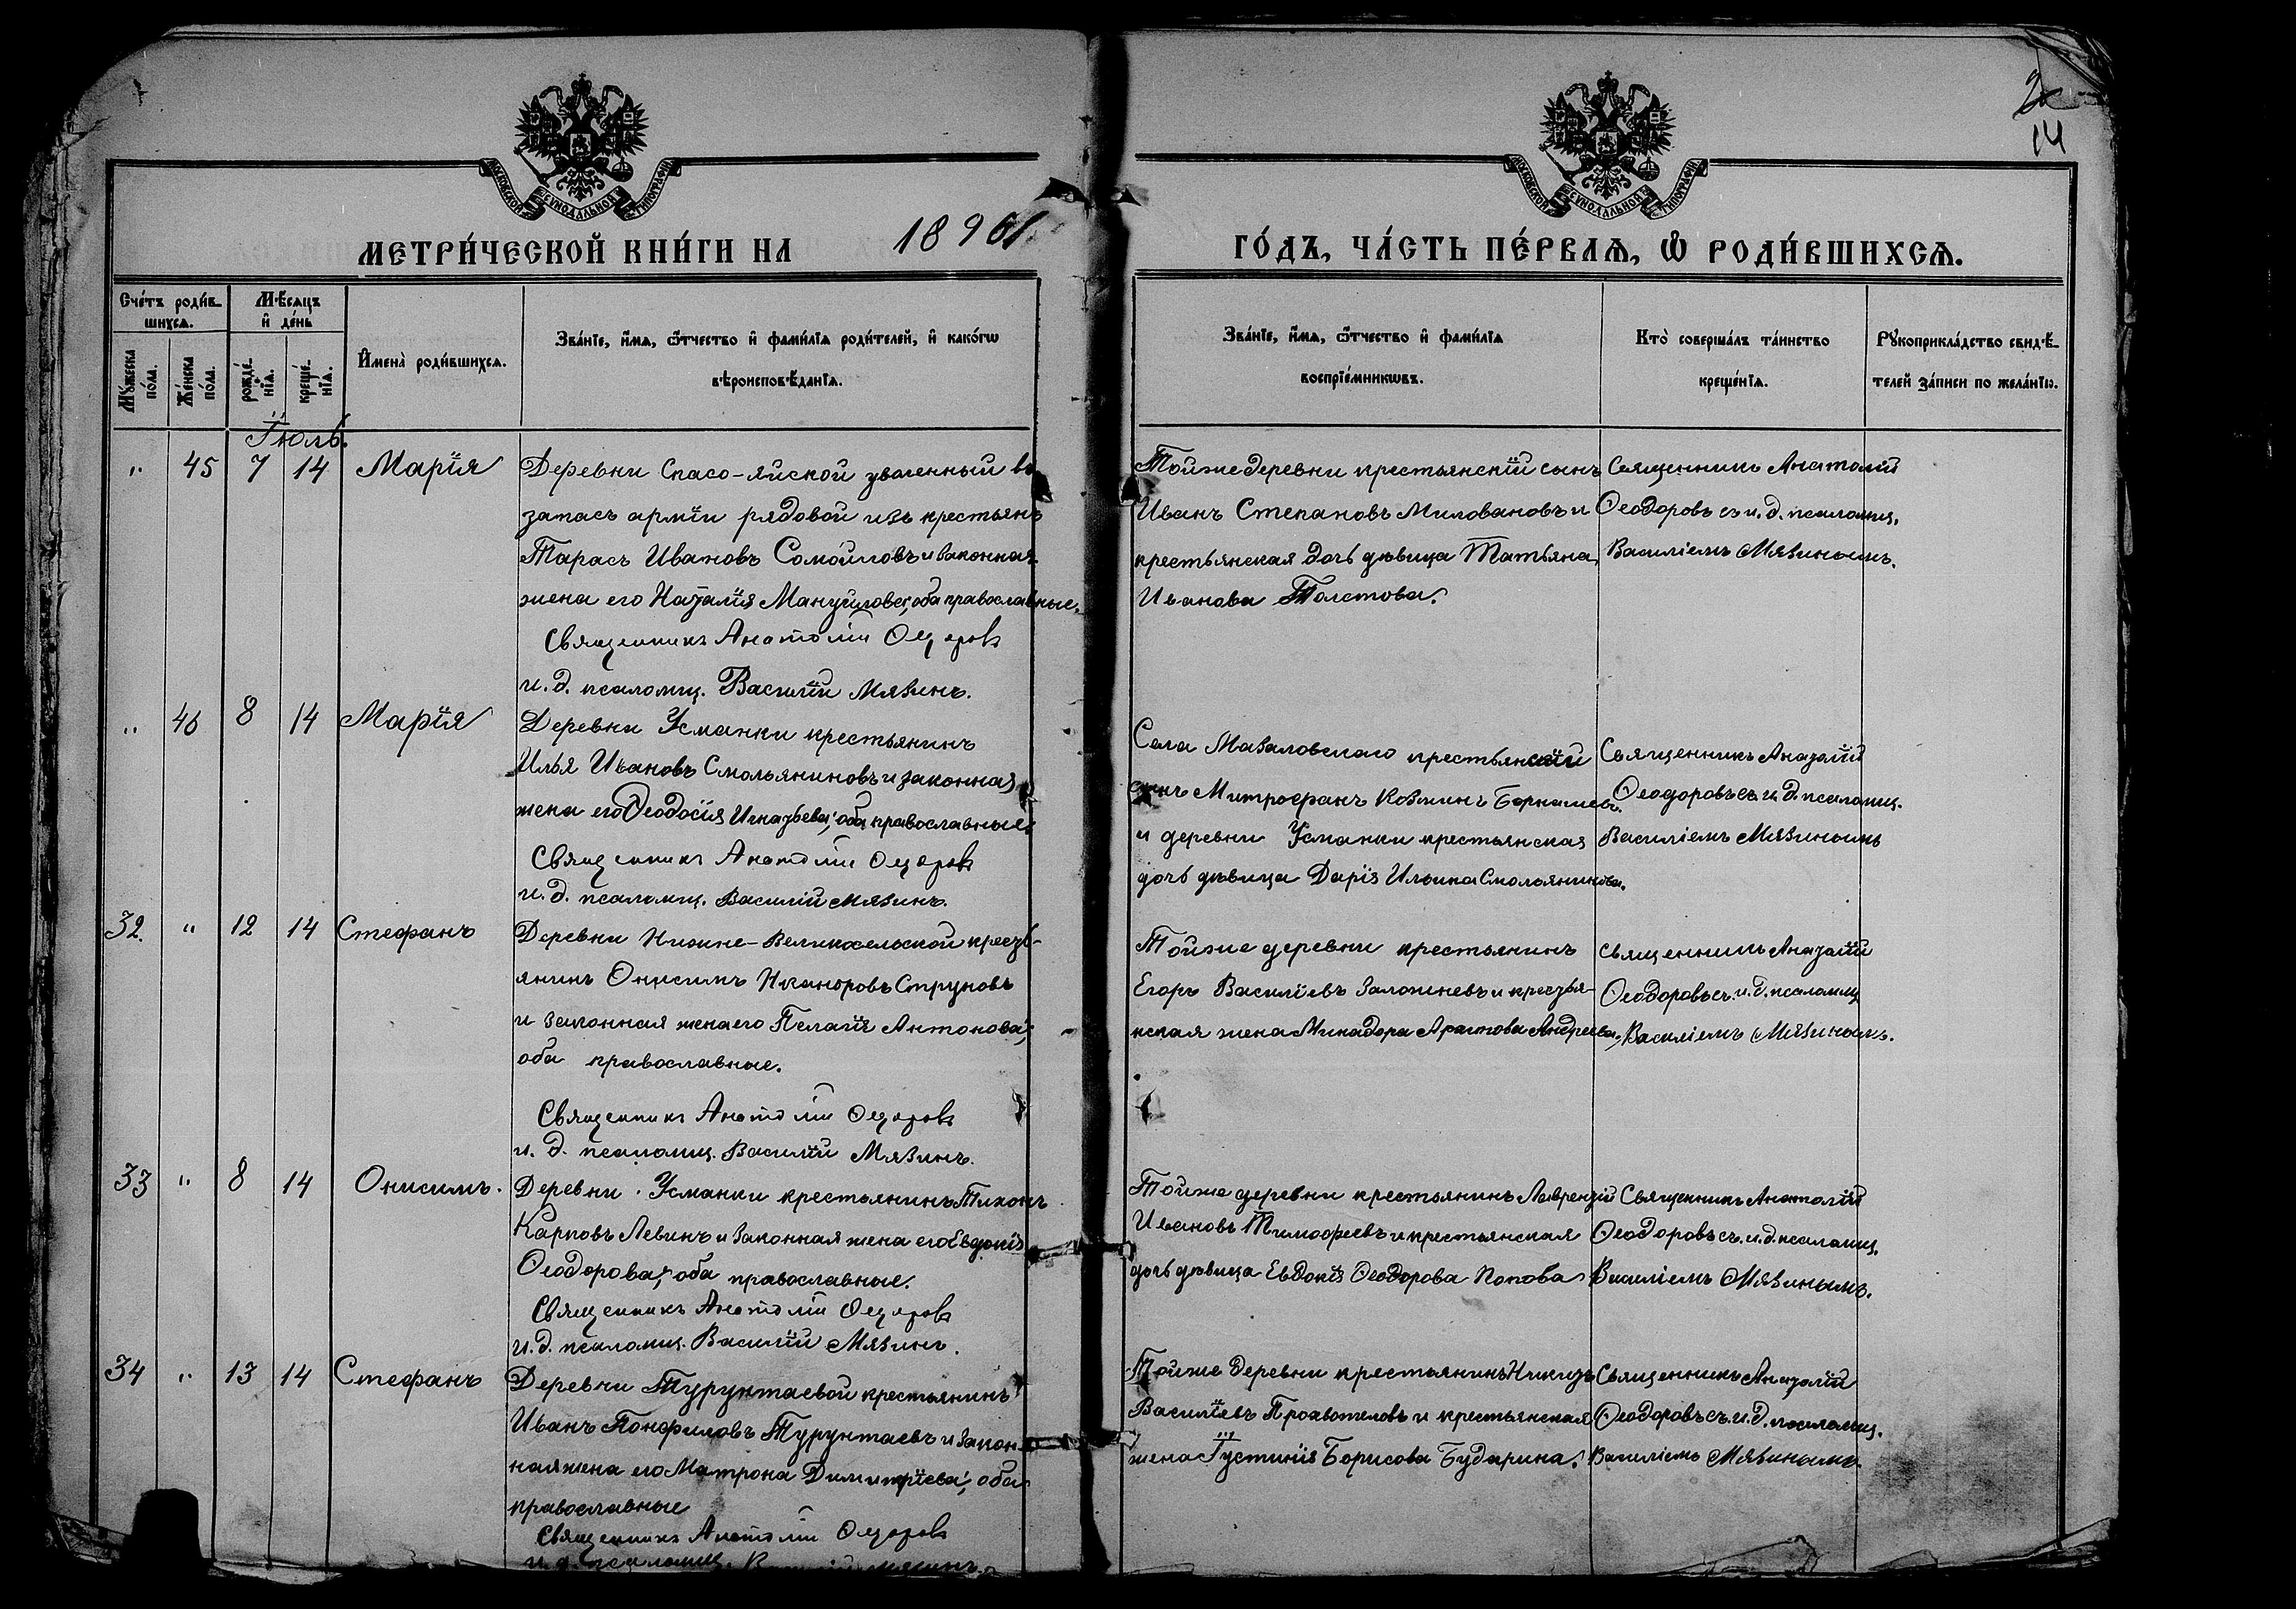 2
14
МОСКОВСКОЙ СѴНОДАЛЬНОЙ ТИПОГРАФІИ
МОСКОВСКОЙ СѴНОДАЛЬНОЙ ТИПОГРАФІИ
МЕТРИ́ЧЕСКОЙ КНИ́ГИ НА 1896
ГО́ДЪ, ЧА́СТЬ ПЕ́РВАѦ, Ѡ҆ РОДИ́ВШИХСѦ.
Счётъ роди́в-
шихсѧ.
Мѣ́сѧцъ
и҆ де́нь
Мꙋ́жеска по́ла.
Же́нска по́ла.
рожде́-нїѧ.
креще́-нїѧ.
И҆мена̀ роди́вшихсѧ.
Зва́нїе, и҆́мѧ, ѻ҆́тчество и҆ фами́лїѧ роди́телей, и҆ како́гѡ
вѣроисповѣ́данїѧ.
Зва́нїе, и҆́мѧ, ѻ҆́тчество и҆ фами́лїѧ
воспрїе́мникѡвъ.
Кто̀ соверша́лъ та́инство
креще́нїѧ.
Рꙋкоприкла́дство свидѣ́-
телей за́писи по жела́нїю.
Іюль.
" 45 7 14 Марія
Деревни Спасо-Яйской уволенный въ
запасъ арміи рядовой изъ крестьянъ
Тарасъ Ивановъ Самойловъ и законная
жена его Наталія Мануйлова; оба православные.
Священникъ Анатолій Ѳедоровъ
и. д. псаломщ. Василій Мязинъ.
Тойже деревни крестьянскій сынъ
Иванъ Степановъ Миловановъ и
крестьянская дочь дѣвица Татьяна
Иванова Толстова.
Священникъ Анатолій
Ѳеодоровъ съ и. д. псаломщ.
Василіемъ Мязинымъ.
" 46 8 14 Марія
Деревни Усманки крестьянинъ
Илья Ивановъ Смольяниновъ и законная
жена его Ѳеодосія Игнатьева; оба православные
Священникъ Анатолій Ѳедоровъ
и. д. псаломщ. Василій Мязинъ.
Села Мазаловскаго крестьянскій
сынъ Митрофанъ Козминъ
и деревни Усманки крестьянская
дочь дѣвица Дарія Ильина Смольянинова.
Священникъ Анатолій
Ѳеодоровъ съ и. д. псаломщ.
Василіемъ Мязинымъ
32. " 12 14 Стефанъ
Деревни Нижне-Великосельской кресть-
янинъ Онисимъ Никаноровъ Струковъ
и законная жена его Пелагія Антонова;
оба православные.
Священникъ Анатолій Ѳедоровъ
и. д. псаломщ. Василій Мязинъ.
Тойже деревни крестьянинъ
Егоръ Василіевъ и крестья-
нская жена Андреева.
Священникъ Анатолій
Ѳеодоровъ съ. и. д. псаломщ
Василіемъ Мязинымъ.
33 " 8 14 Онисимъ.
Деревни Усманки крестьянинъ Тихонъ
Карповъ Левинъ и законная жена его Евдокія
Ѳеодорова; оба православные.
Священникъ Анатолій Ѳедоровъ
и. д. псаломщ. Василій Мязинъ.
Тойже деревни крестьянинъ Лаврентій
Ивановъ Тимофеевъ и крестьянская
дочь дѣвица Евдокія Ѳеодорова Попова
Священникъ Анатолій
Ѳеодоровъ съ. и. д. псаломщ.
Василіемъ Мязинымъ.
34 " 13 14 Стефанъ
Деревни Турунтаевой крестьянинъ
Иванъ Понфиловъ Турунтаевъ и закон-
ная жена его Матрона Димитріева; оба
православные
Священникъ Анатолій Ѳедоровъ
и. д. псаломщ. Василій Мязинъ.
Тойже деревни крестьянинъ Никита
Василіевъ и крестьянская
жена Іустинія Борисова Бударина.
Священникъ Анатолій
Ѳеодоровъ съ. и. д. псаломщ.
Василіемъ Мязинымъ.